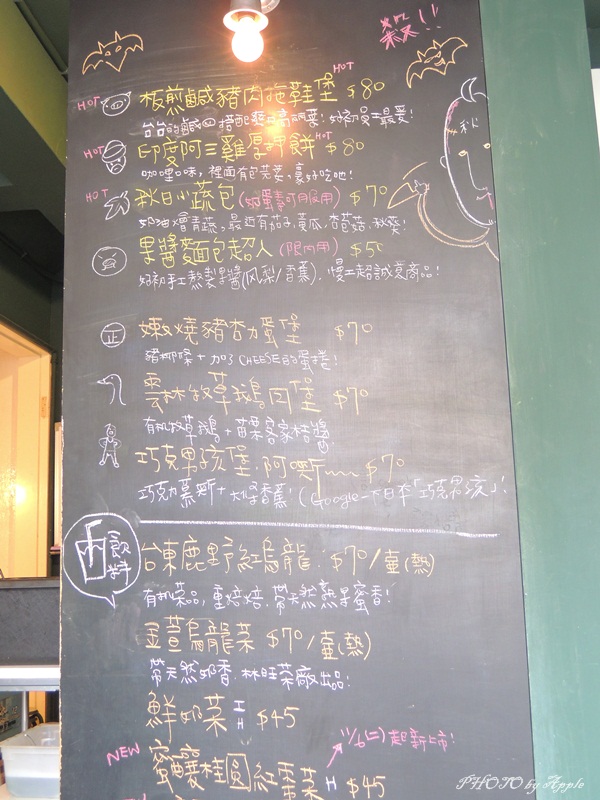 穀!!
HOT
板煎鹹豬肉拖鞋堡 HOT $80
台台的鹹 搭配 高麗菜! 好初員工最愛!
HOT 印度阿三雞厚押餅 HOT $80
咖哩口味, 裡面有包芙蓉, 豪好吃吔!
HOT 秋日小蔬包 (如蛋素可用) $70
奶油燴青蔬, 最近有茄子, 黃瓜, 杏苞菇, 秋葵!
秋
果醬麵包超人 (限內用) $50
好初手工熬製果醬(凤梨/香蕉), 慢工超誠意商品!
正 嫩燒豬杏力蛋堡 $70
豬柳條+加了CHEESE的蛋捲!
雲林牧草鵝肉堡 $70
有机牧草鵝+苗栗客家桔醬
巧克男孩堡,阿嘶~~ $70
巧克力慕斯+大仔香蕉! (Google一下日本「巧克男孩」!
飲料
台東鹿野紅烏龍: $70/壺(熱)
有机菜品, 重焙焙, 帶天然熟果蜜香!
金萱烏龍菜 $70/壺(熱)
帶天然奶香, 林旺菜廠出品!
鮮奶菜 I H $45
11/6(二)起新上市!
NEW 蜜釀桂圓紅棗菜 H $45
PHOTO by Apple